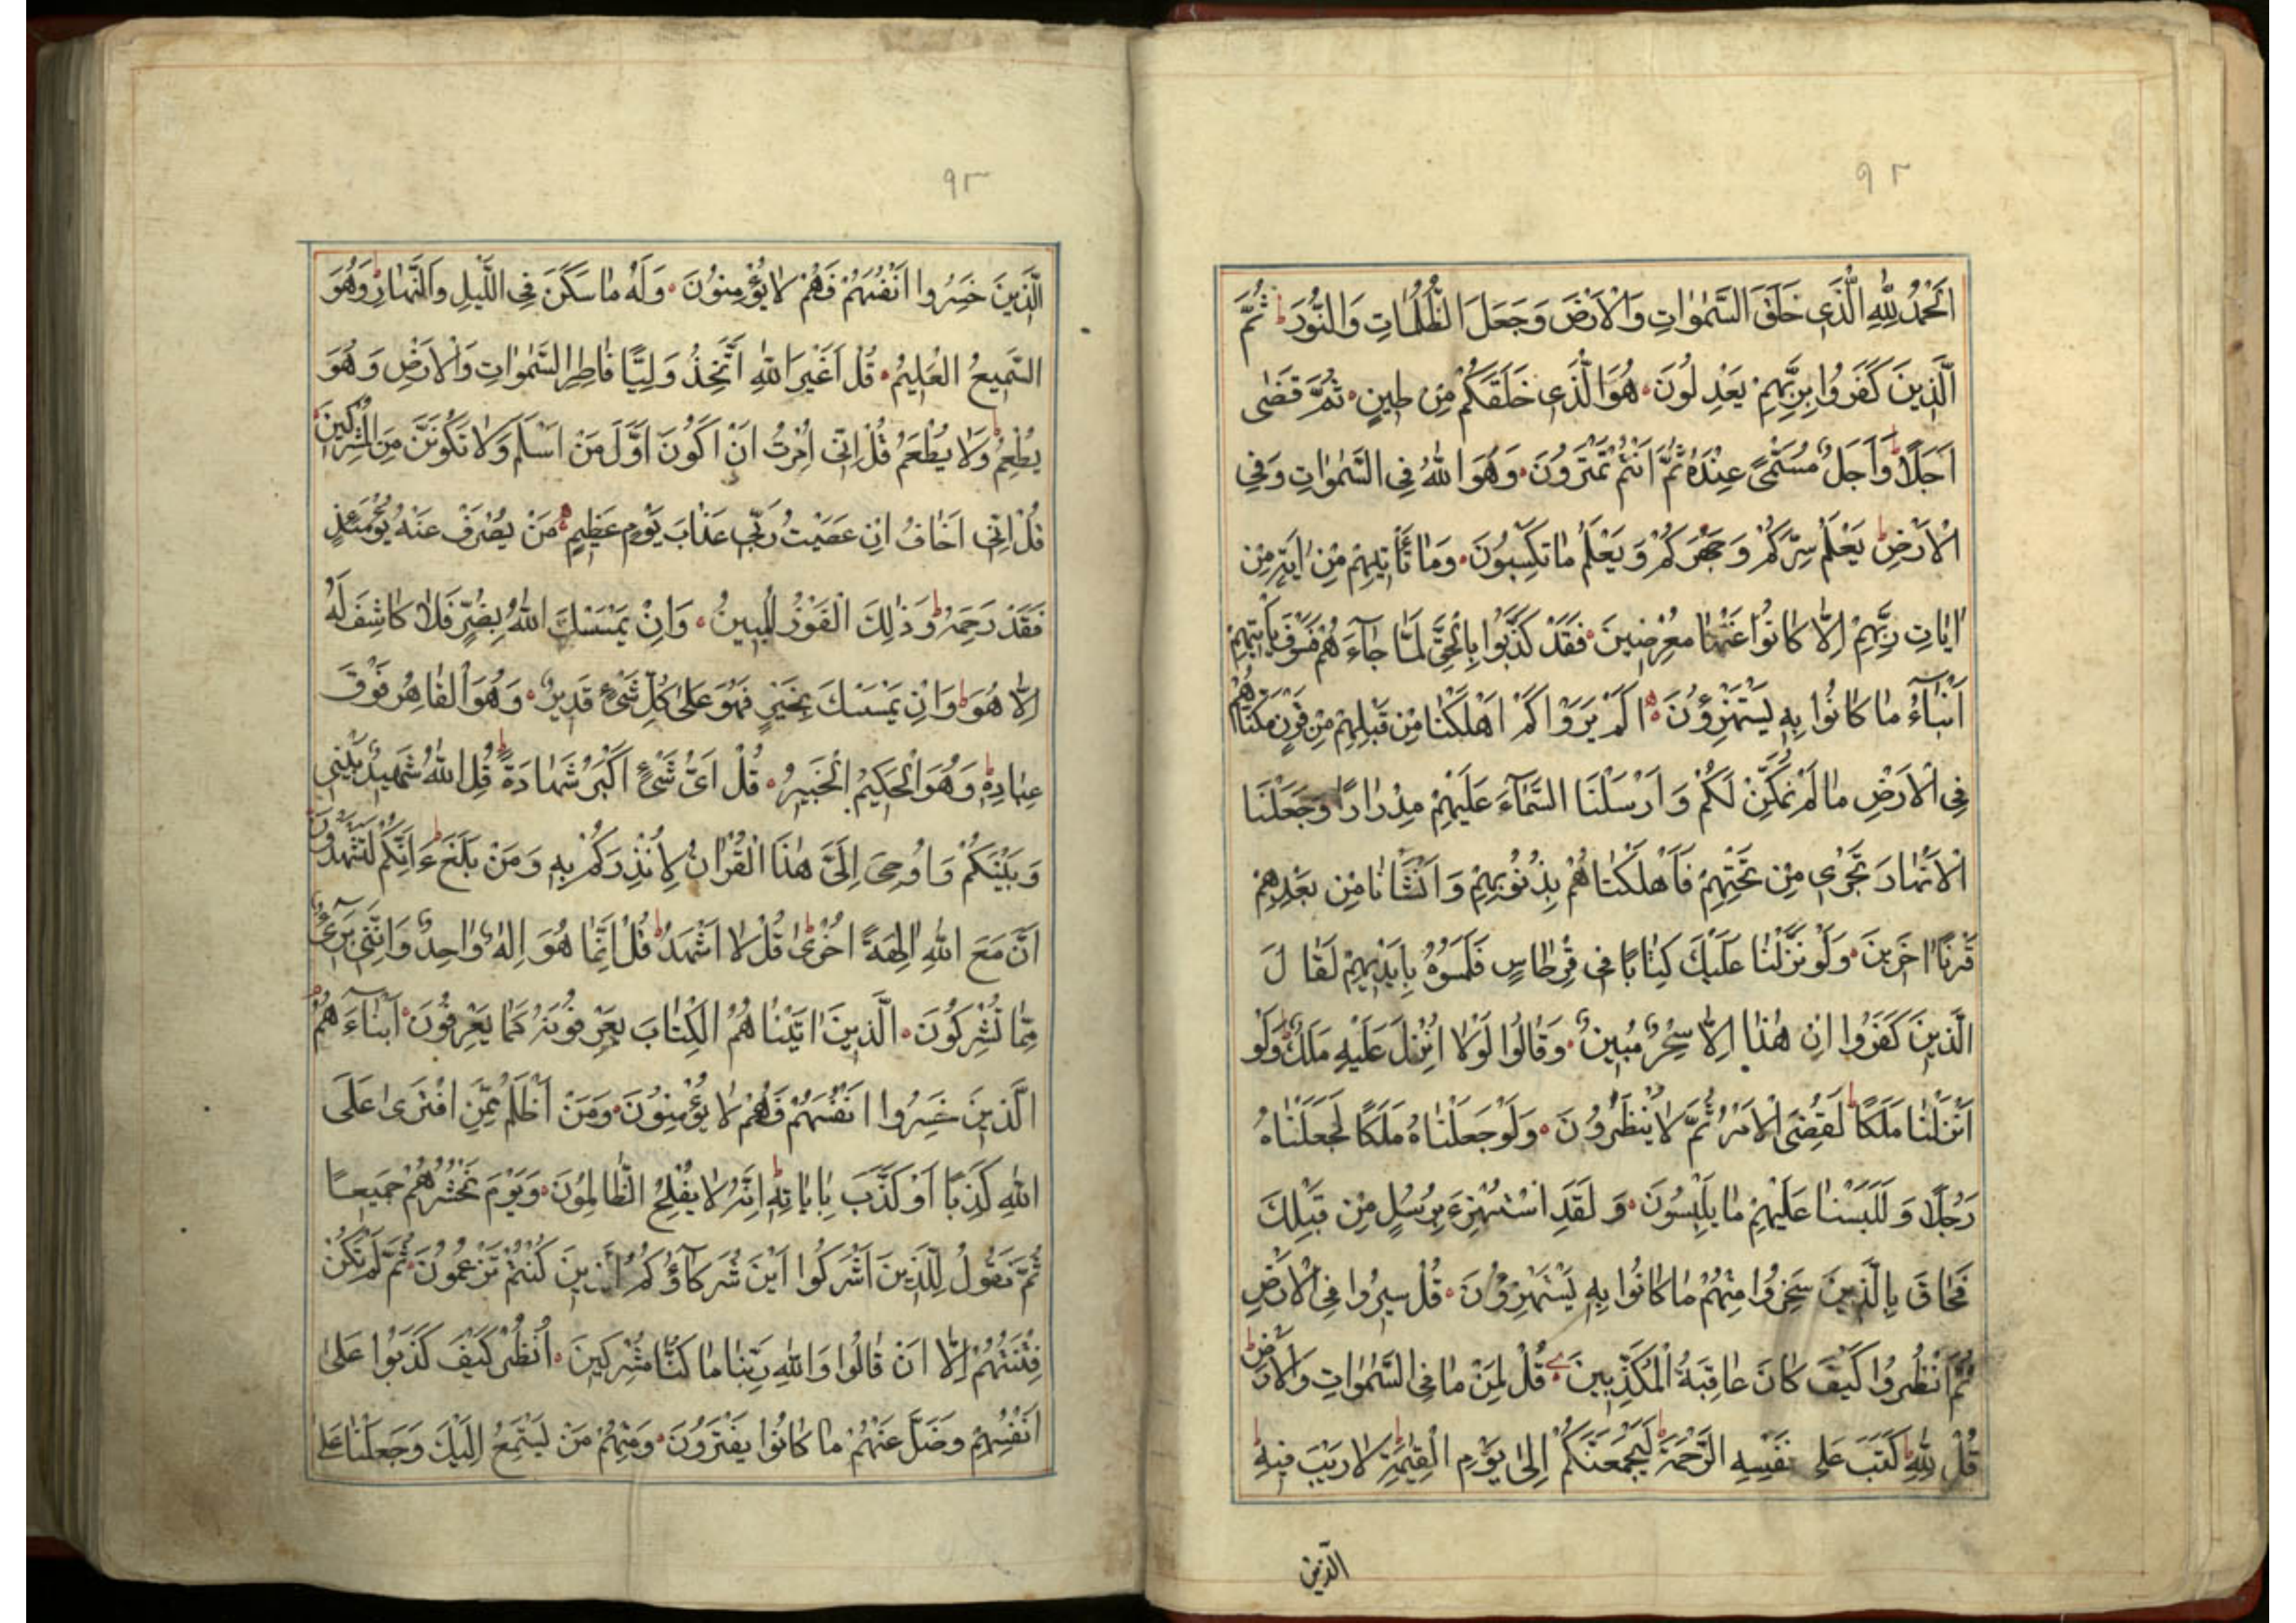 ٩٢
اَلْحَمْدُ لِلّٰهِ الَّذٖى خَلَقَ السَّمٰوَاتِ وَالْاَرْضَ وَجَعَلَ الظُّلُمَاتِ وَالنُّورَ ط ثُمَّ
الَّذٖينَ كَفَرُوا بِرَبِّهِمْ يَعْدِلُونَ۰ هُوَ الَّذٖى خَلَقَكُمْ مِنْ طٖينٍ۰ ثُمَّ قَضٰى
اَجَلًا ط وَاَجَلٌ مُسَمًّى عِنْدَهُ ثُمَّ اَنْتُمْ تَمْتَرُونَ۰ وَهُوَ اللّٰهُ فِى السَّمٰوَاتِ وَفِى
الْاَرْضِ ط يَعْلَمُ سِرَّكُمْ وَجَهْرَكُمْ وَيَعْلَمُ مَا تَكْسِبُونَ۰ وَمَا تَأْتٖيهِمْ مِنْ اٰيَةٍ مِنْ
اٰيَاتِ رَبِّهِمْ اِلَّا كَانُوا عَنْهَا مُعْرِضٖينَ۰ فَقَدْ كَذَّبُوا بِالْحَقِّ لَمَّا جَآءَهُمْ فَسَوْفَ يَأْتٖيهِمْ
اَنْبَاءُ مَا كَانُوا بِهٖ يَسْتَهْزِؤُنَ۰ اَلَمْ يَرَوْا كَمْ اَهْلَكْنَا مِنْ قَبْلِهِمْ مِنْ قَرْنٍ مَكَّنَّاهُمْ
فِى الْاَرْضِ مَا لَمْ نُمَكِّنْ لَكُمْ وَاَرْسَلْنَا السَّمَآءَ عَلَيْهِمْ مِدْرَارًا وَجَعَلْنَا
الْاَنْهَارَ تَجْرٖى مِنْ تَحْتِهِمْ فَاَهْلَكْنَاهُمْ بِذُنُوبِهِمْ وَاَنْشَأْنَا مِنْ بَعْدِهِمْ
قَرْنًا اٰخَرٖينَ۰ وَلَوْ نَزَّلْنَا عَلَيْكَ كِتَابًا فٖى قِرْطَاسٍ فَلَمَسُوهُ بِاَيْدٖيهِمْ لَقَالَ
الَّذٖينَ كَفَرُوا اِنْ هٰذَا اِلَّا سِحْرٌ مُبٖينٌ۰ وَقَالُوا لَوْلَا اُنْزِلَ عَلَيْهِ مَلَكٌ ط وَلَوْ
اَنْزَلْنَا مَلَكًا لَقُضِىَ الْاَمْرُ ثُمَّ لَا يُنْظَرُونَ۰ وَلَوْ جَعَلْنَاهُ مَلَكًا لَجَعَلْنَاهُ
رَجُلًا وَلَلَبَسْنَا عَلَيْهِمْ مَا يَلْبِسُونَ۰ وَلَقَدِ اسْتُهْزِءَ بِرُسُلٍ مِنْ قَبْلِكَ
فَحَاقَ بِالَّذٖينَ سَخِرُوا مِنْهُمْ مَا كَانُوا بِهٖ يَسْتَهْزِؤُنَ۰ قُلْ سٖيرُوا فِى الْاَرْضِ
ثُمَّ انْظُرُوا كَيْفَ كَانَ عَاقِبَةُ الْمُكَذِّبٖينَ۰ قُلْ لِمَنْ مَا فِى السَّمٰوَاتِ وَالْاَرْضِ ط
قُلْ لِلّٰهِ ط كَتَبَ عَلٰى نَفْسِهِ الرَّحْمَةَ ط لَيَجْمَعَنَّكُمْ اِلٰى يَوْمِ الْقِيٰمَةِ لَا رَيْبَ فٖيهِ ط
الَّذٖينَ
٩٣
الَّذٖينَ خَسِرُوا اَنْفُسَهُمْ فَهُمْ لَا يُؤْمِنُونَ۰ وَلَهُ مَا سَكَنَ فِى اللَّيْلِ وَالنَّهَارِ ط وَهُوَ
السَّمٖيعُ الْعَلٖيمُ۰ قُلْ اَغَيْرَ اللّٰهِ اَتَّخِذُ وَلِيًّا فَاطِرِ السَّمٰوَاتِ وَالْاَرْضِ وَهُوَ
يُطْعِمُ وَلَا يُطْعَمُ ط قُلْ اِنّٖى اُمِرْتُ اَنْ اَكُونَ اَوَّلَ مَنْ اَسْلَمَ وَلَا تَكُونَنَّ مِنَ الْمُشْرِكٖينَ۰
قُلْ اِنّٖى اَخَافُ اِنْ عَصَيْتُ رَبّٖى عَذَابَ يَوْمٍ عَظٖيمٍ۰ مَنْ يُصْرَفْ عَنْهُ يَوْمَئِذٍ
فَقَدْ رَحِمَهُ ط وَذٰلِكَ الْفَوْزُ الْمُبٖينُ۰ وَاِنْ يَمْسَسْكَ اللّٰهُ بِضُرٍّ فَلَا كَاشِفَ لَهُ
اِلَّا هُوَ ط وَاِنْ يَمْسَسْكَ بِخَيْرٍ فَهُوَ عَلٰى كُلِّ شَىْءٍ قَدٖيرٌ۰ وَهُوَ الْقَاهِرُ فَوْقَ
عِبَادِهٖ ط وَهُوَ الْحَكٖيمُ الْخَبٖيرُ۰ قُلْ اَىُّ شَىْءٍ اَكْبَرُ شَهَادَةً ط قُلِ اللّٰهُ شَهٖيدٌ بَيْنٖى
وَبَيْنَكُمْ وَاُوحِىَ اِلَىَّ هٰذَا الْقُرْاٰنُ لِاُنْذِرَكُمْ بِهٖ وَمَنْ بَلَغَ ط ءَاِنَّكُمْ لَتَشْهَدُونَ
اَنَّ مَعَ اللّٰهِ اٰلِهَةً اُخْرٰى ط قُلْ لَا اَشْهَدُ ط قُلْ اِنَّمَا هُوَ اِلٰهٌ وَاحِدٌ وَاِنَّنٖى بَرٖىءٌ
مِمَّا تُشْرِكُونَ۰ الَّذٖينَ اٰتَيْنَاهُمُ الْكِتَابَ يَعْرِفُونَهُ كَمَا يَعْرِفُونَ اَبْنَاءَهُمْ
الَّذٖينَ خَسِرُوا اَنْفُسَهُمْ فَهُمْ لَا يُؤْمِنُونَ۰ وَمَنْ اَظْلَمُ مِمَّنِ افْتَرٰى عَلَى
اللّٰهِ كَذِبًا اَوْ كَذَّبَ بِاٰيَاتِهٖ ط اِنَّهُ لَا يُفْلِحُ الظَّالِمُونَ۰ وَيَوْمَ نَحْشُرُهُمْ جَمٖيعًا
ثُمَّ نَقُولُ لِلَّذٖينَ اَشْرَكُوا اَيْنَ شُرَكَآؤُكُمُ الَّذٖينَ كُنْتُمْ تَزْعُمُونَ۰ ثُمَّ لَمْ تَكُنْ
فِتْنَتُهُمْ اِلَّا اَنْ قَالُوا وَاللّٰهِ رَبِّنَا مَا كُنَّا مُشْرِكٖينَ۰ اُنْظُرْ كَيْفَ كَذَبُوا عَلٰى
اَنْفُسِهِمْ وَضَلَّ عَنْهُمْ مَا كَانُوا يَفْتَرُونَ۰ وَمِنْهُمْ مَنْ يَسْتَمِعُ اِلَيْكَ وَجَعَلْنَا عَلٰى